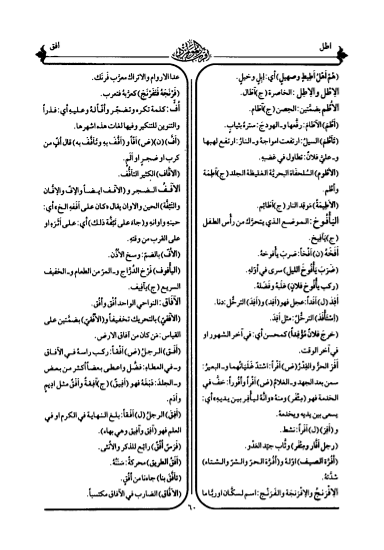 اطل
افق
(هُمْ أهْلُ أطِيطٍ وصَهِيلٍ) أي: إبِلٍ وخَيلٍ.
الإطْل والإطِل: الخاصرة (ج) آطال.
الأُطُم بضمّتين: الحِصن (ج) آطام.
(أطَّم) الآطامَ: رفَّعها و-الهودجَ: سترَهُ بثيابٍ.
(تأطّم) السيلُ: ارتفعت امواجهُ و-النارُ: ارتفع لهبها
و-على فلانٍ: تطاول في غضبهِ.
(الأطُوم) السُلحفاة البحريَّة الغليظة الجلد (ج) آطِمَة
وأُطُم.
(الأطِيمَة) مَوقِد النار (ج) أطائِم.
اليَأْفُوخ: الموضع الذي يتحرَّك من رأس الطفل
(ج) يَآفِيخ.
أفَخَهُ (ن) أفْخاً: ضربَ يأفوخهُ.
(ضَربَ يأْفُوخَ الليلِ) سرى في أوّلهِ.
(ركب يأفوخَ فلانٍ) غلبهُ وفَضَلَهُ.
أفِدَ (ل) أفَداً: عجِل فهو (أفِد) و(أفِدَ) الترحُّل: دنا.
(إستأفَدَ) الترحُّل: مثل أفِدَ.
(خرجَ فلانٌ مُؤْفِداً) كمحسن أي: في آخر الشهور او
في آخر الوقت.
أفَرَ الحرُّ والقِدْرُ (ض) أفْراً: اشتدّ غَليانُهما و-البعيرُ:
سمن بعد الجهد و-الغلامُ (ض) أفْراً وأُفوراً: خفّ في
الخدمة فهو (مِئْفَر) ومنه «انّهُ ليأفِر بين يديهِ» أي:
يسعى بين يديه ويخدمهُ.
و (أفِرَ) (ل) أفَراً: نشط.
(رجل أفّار ومِئْفَر) وثّاب جيّد العَدْو.
(أفُرَّة الصيف) اوّلهُ و (أفُرّة الحرّ والشرّ والشتاء)
شدَّتهُ.
الإفْرَنْج والإفْرَنْجَة والفَرَنْج: اسم لسكّان اوربّا ما
عدا الاروام والاتراك معرَّب فرنك.
(فَرْنَجَهُ فَتَفَرْنَجَ) كعرَّبهُ فتعرب.
أُفّ: كلمة تكره وتضجُّر و«أفّاً لهُ وعليه» أي: قَذَراً
والتنوين للتنكير وفيها لغات هذه اشهرها.
(أفَّ) (ن) (ض) أفّاً و(أفَّف بهِ وتأفَّف بهِ) قال أُفّ من
كرب او ضجر او ألم.
(الأفّاف) الكثير التأفُّف.
الأفَف: الضجر و(الأفف ايضاً والإفّ والإفّان
والتئِفّة) الحين والاوان يقال «كان على أفَفهِ الخ» أي:
حينهِ واوانهِ و(جاء على تَئِفَّة ذلك) أي: على أثرهِ او
على القرب من وقتهِ.
(الأُفّ) بالضمّ: وسخ الأذن.
(اليأفوف) فرخ الدُرّاج و-المرّ من الطعام و-الخفيف
السريع (ج) يآفيف.
الآفاق: النواحي الواحد أفْق وأُفُق.
(الأفَقيّ) بالتحريك تخفيفاً و(الأُفُقيّ) بضمّتين على
القياس: مَن كان من آفاق الارض.
(أفَق) الرجلُ (ض) أفْقاً: ركب رأسهُ في الآفاق
و-في العطاء: فضّل واعطى بعضاً اكثر من بعض
و-الجلدَ: دَبَغَهُ فهو (أفِيق) (ج) آفِقَة وأُفُق مثل اديم
وأدَم.
(أفِقَ) الرجلُ (ل) أفَقاً: بلغ النهاية في الكرم او في
العلم فهو (آفِق وأفِيق وهي بهاء).
(فَرَسٌ أُفُق) رائع للذكر والأنثى.
(أفَق الطريق) محركةً: سَنَنُهُ.
(تأفَّق بنا) جاءنا من أُفُق.
(الأفّاق) الضارب في الآفاق مكتسباً.
٦٠